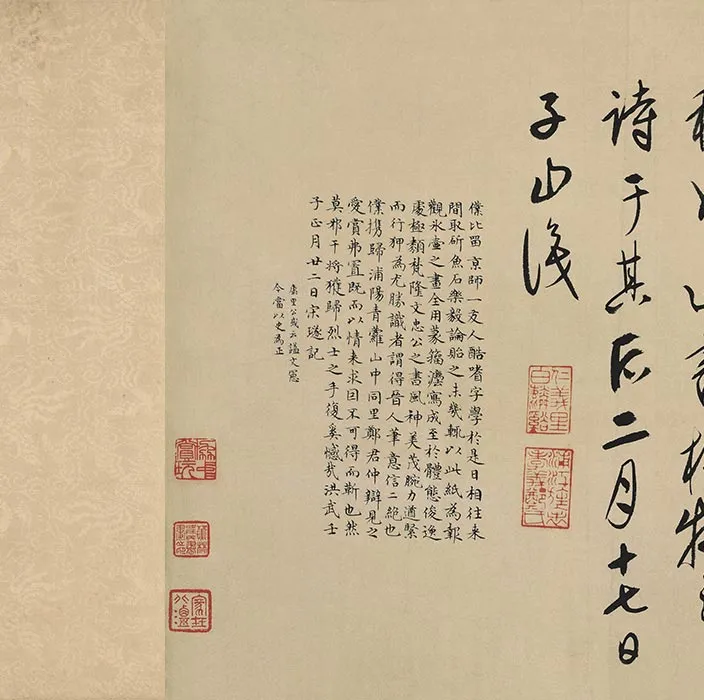 詩于其后二月十七日
子山識
僕比留京師一友人酷嗜字學於是日相往来
間取斫魚石樂毅論貽之未幾輒以此紙為報
觀氷壺之畫全用篆籀灋寫成至於體態俊逸
處極類梵隆文忠公之書風神美茂腕力遒緊
而行押為尤勝識者謂得晉人筆意信二絶也
僕携歸浦陽青蘿山中同里鄭君仲辯見之
愛賞弗置既而以情来求因不可得而靳也然
莫邪干将獲歸烈士之手復奚憾哉洪武壬
子正月廿二日宋璲記
康里公或云諡文憲
今當以史為正